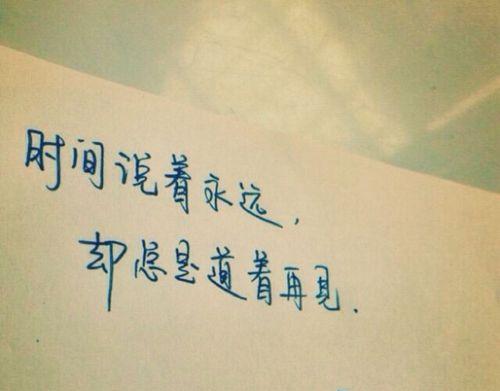 时间说着永远，
却总是道着再见．